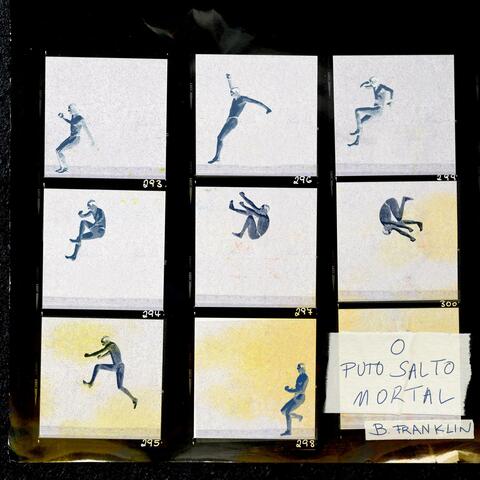 293
296
299
294
297
300
295
298
O
PUTO SALTO
MORTAL
B. FRANKLIN